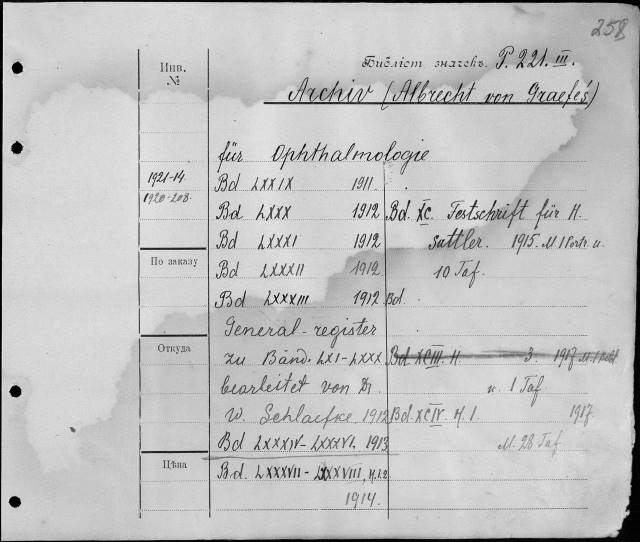 258
Инв.
№
Библіот значекъ. P. 221. III.
Archiv (Albrecht von Graefe's)
für Ophthalmologie
1921-14
1920-208.
Bd LXXIX 1911.
Bd LXXX 1912
Bd LXXXI 1912
Bd LXXXII 1912
Bd LXXXIII 1912
General-register
zu Bänd. LXI-LXXX
bearleitet von Dr
W. Schlaefke 1912
Bd LXXXIV-LXXXVI. 1913
Bd. LXXXVII-LXXXVIII, H.1.2
1914.
Bd. XC. Festschrift für H.
Sattler. 1915. M 1 Portr. u.
10 Taf.
Bd.
Bd XCIII. H. 3. 1917 M. 1
u. 1 Taf.
Bd XCIV. H. 1. 1917
M. 28 Taf
По заказу
Откуда
Цѣна